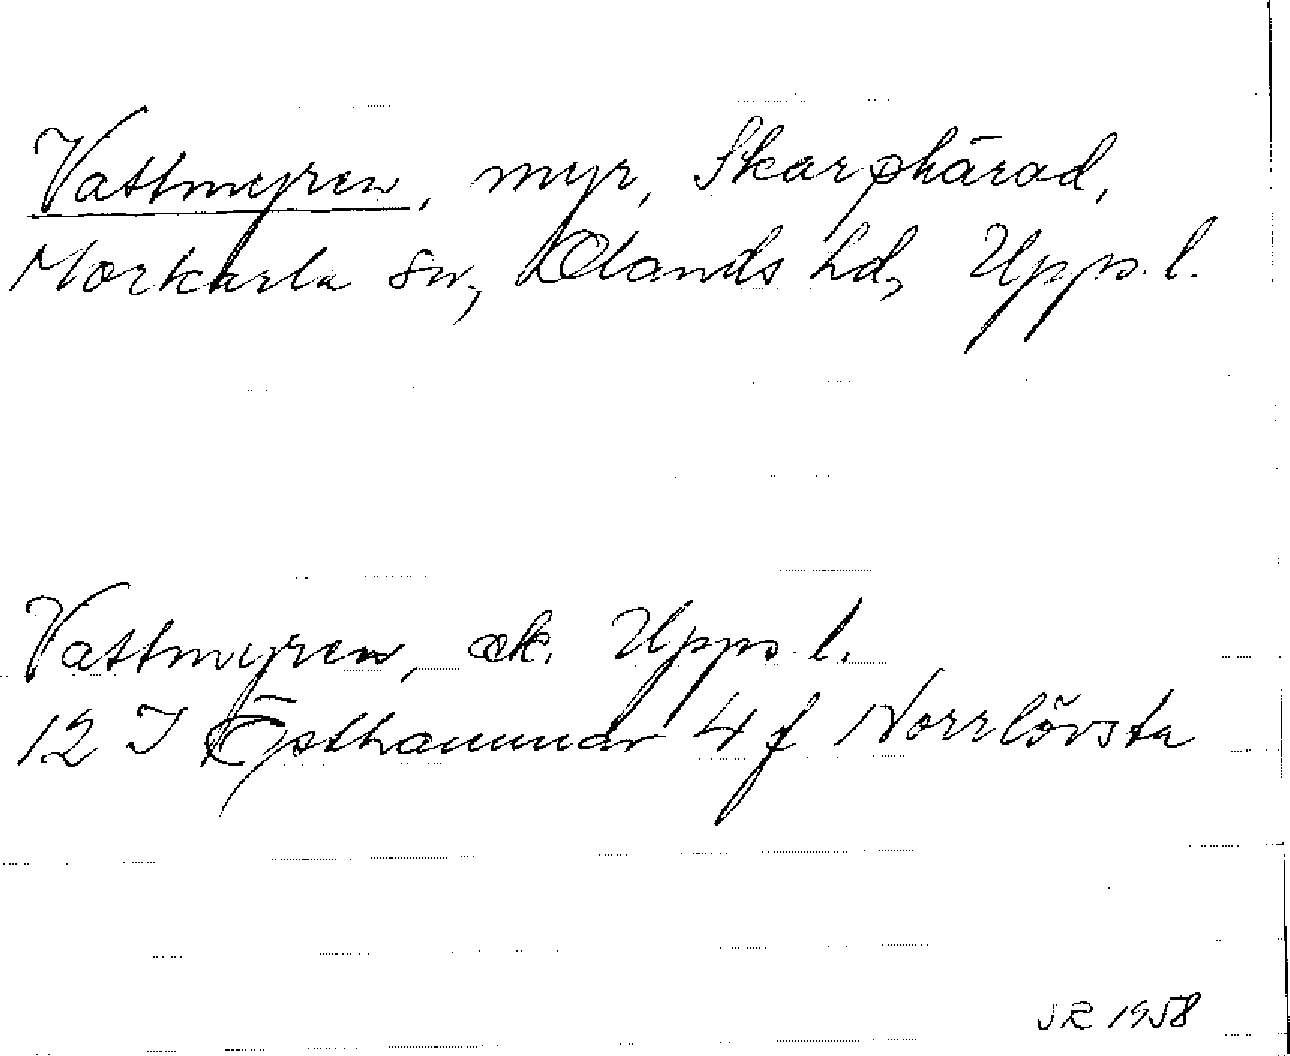 Vattmyren, myr, Skarphärad,
Morkarla sn, Olands hd, Upps. l.
Vattmyren, ek. Upps. l.
12 I Östhammar 4 f Norrlövsta
JR 1958